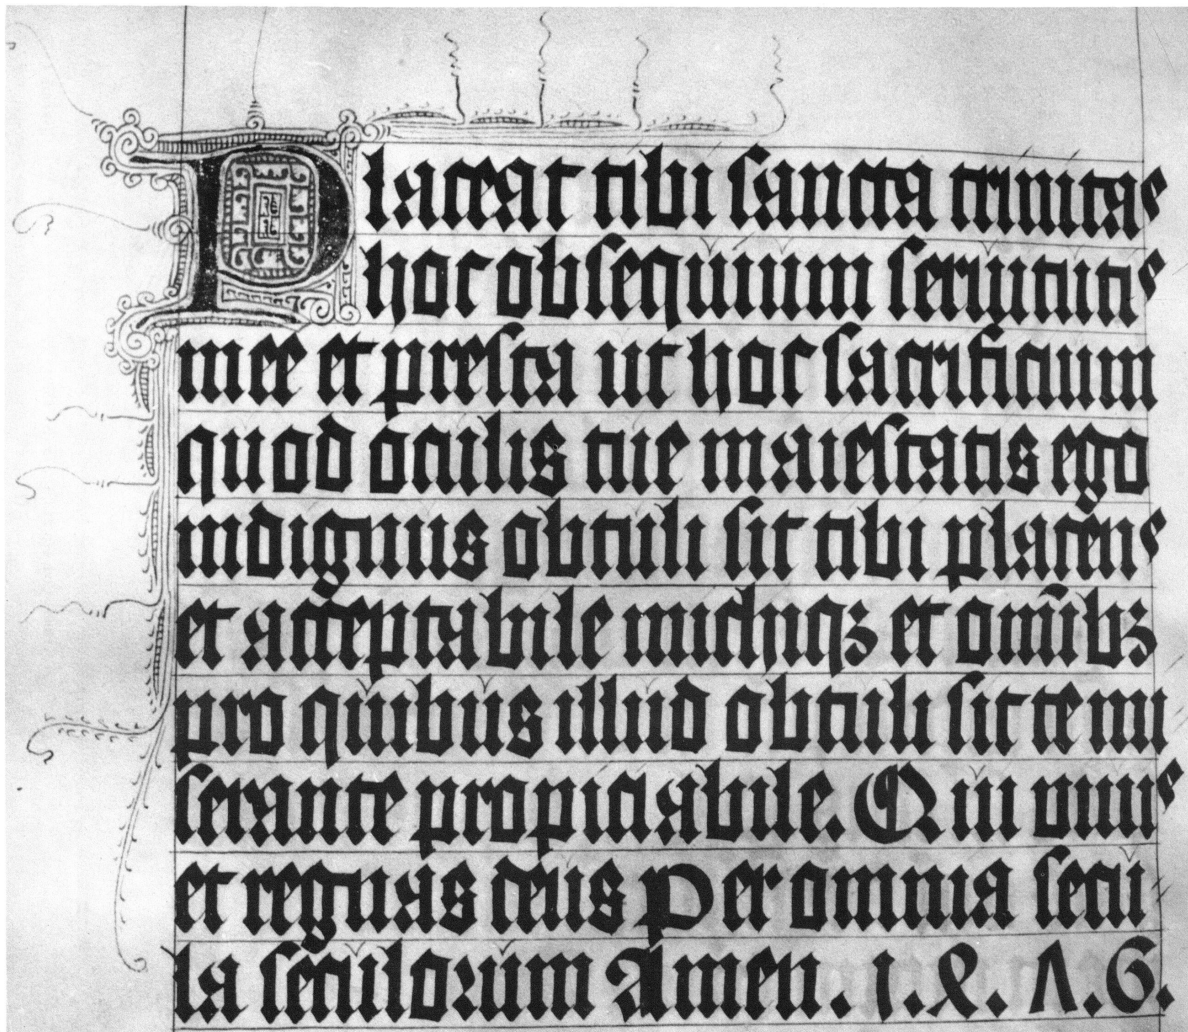 Placeat tibi sancta trinitas
hoc obsequium seruitutis
mee et presta ut hoc sacrificium
quod oculis tue maiestatis ego
indignus obtuli sit tibi placens
et acceptabile michiqꝫ et omībꝫ
pro quibus illud obtuli sit te mi
serante propiciabile. Qui viuis
et regnas deus Per omnia secu
la seculorum Amen. 1.8. Λ.6.